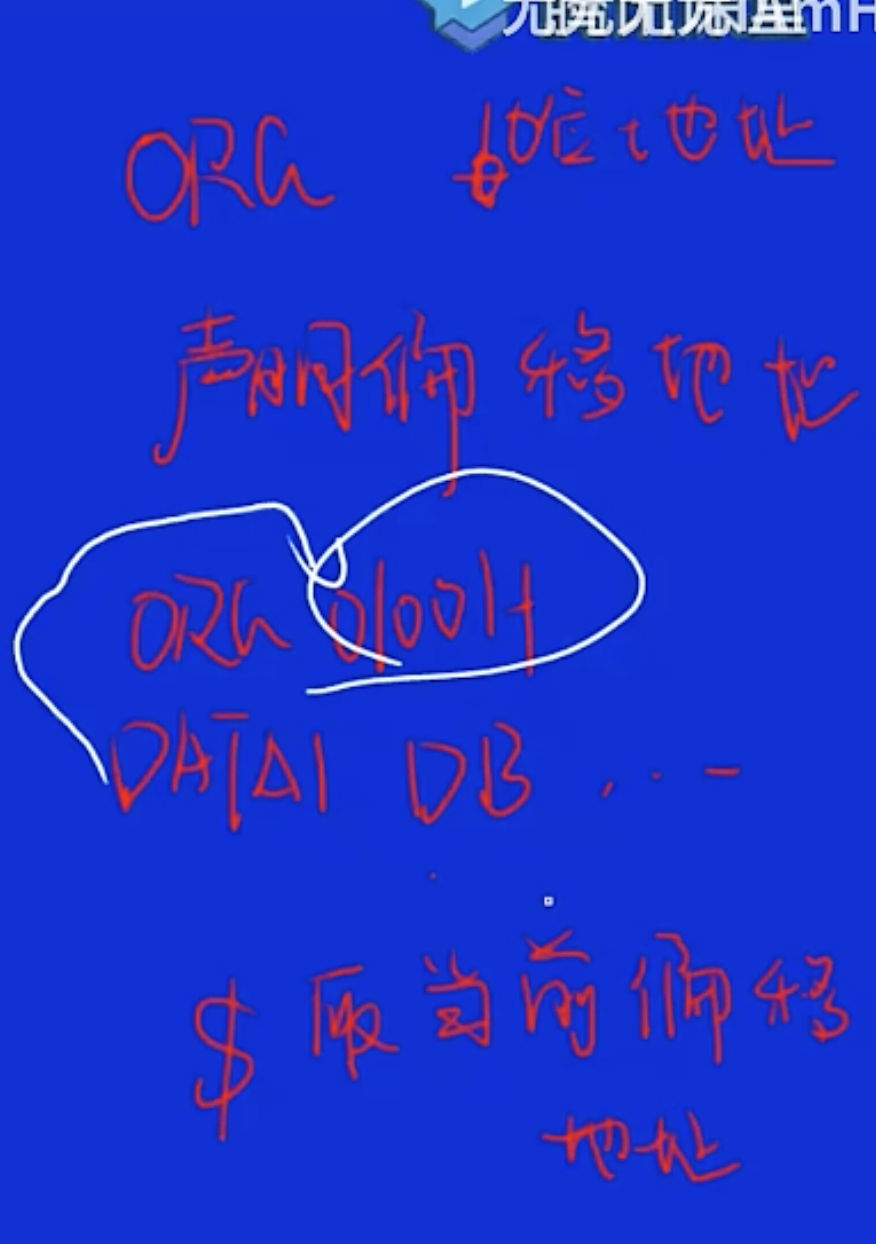 ORG 地址
声明偏移地址
ORG 0100H
DATA1 DB ...
$ 取当前偏移
地址